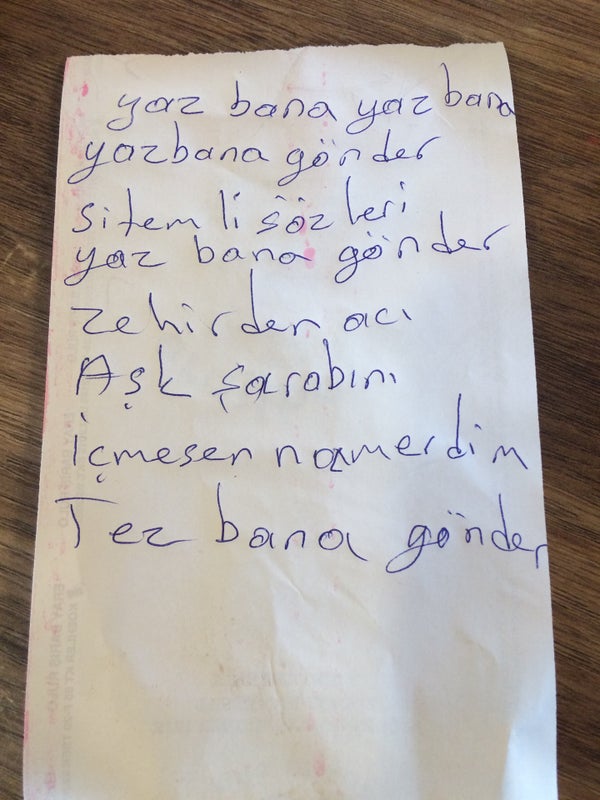 yaz bana yaz bana
yazbana gönder
sitem li sözleri
yaz bana gönder
zehirden acı
Aşk şarabını
içmesen namerdim
Tez bana gönder